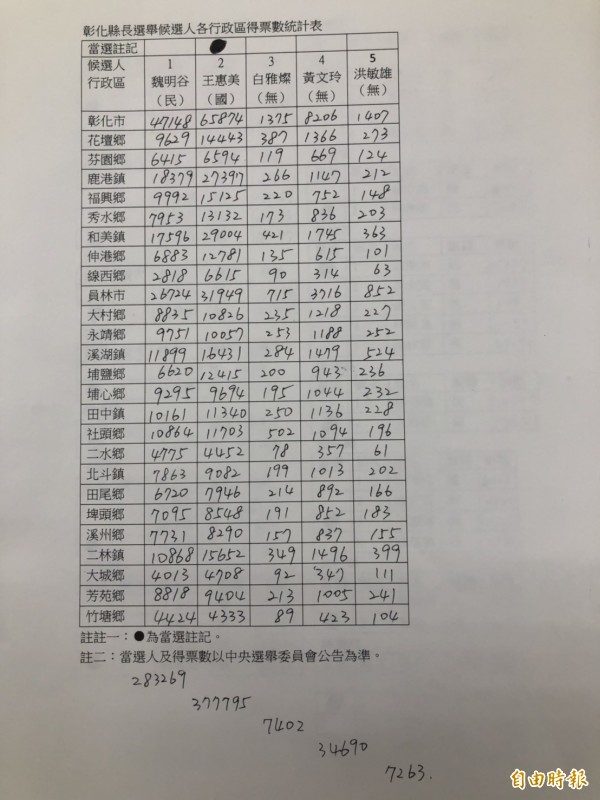 彰化縣長選舉候選人各行政區得票數統計表
當選註記 ●
候選人 1 2 3 4 5
行政區 魏明谷 王惠美 白雅燦 黃文玲 洪敏雄
（民） （國） （無） （無） （無）
彰化市 47148 65874 1375 8206 1407
花壇鄉 9629 14443 387 1366 273
芬園鄉 6415 6594 119 669 124
鹿港鎮 18379 27397 266 1147 212
福興鄉 9992 15125 220 752 148
秀水鄉 7953 13132 173 836 203
和美鎮 17596 29004 421 1745 363
伸港鄉 6883 12781 135 615 101
線西鄉 2818 6615 90 314 63
員林市 26724 31949 715 3716 852
大村鄉 8835 10826 235 1218 227
永靖鄉 9751 10057 253 1188 252
溪湖鎮 11899 16431 284 1479 524
埔鹽鄉 6620 12415 200 943 236
埔心鄉 9295 9694 195 1044 232
田中鎮 10161 11340 250 1136 228
社頭鄉 10864 11703 502 1094 196
二水鄉 4775 4452 78 357 61
北斗鎮 7863 9082 199 1013 202
田尾鄉 6720 7946 214 892 166
埤頭鄉 7095 8548 191 852 183
溪州鄉 7731 8290 157 837 155
二林鎮 10868 15652 349 1496 399
大城鄉 4013 4708 92 347 111
芳苑鄉 8818 9404 213 1005 241
竹塘鄉 4424 4333 89 423 104
註註一：●為當選註記。
註二：當選人及得票數以中央選舉委員會公告為準。
283269
377795
7402
34690
7263.
自由時報